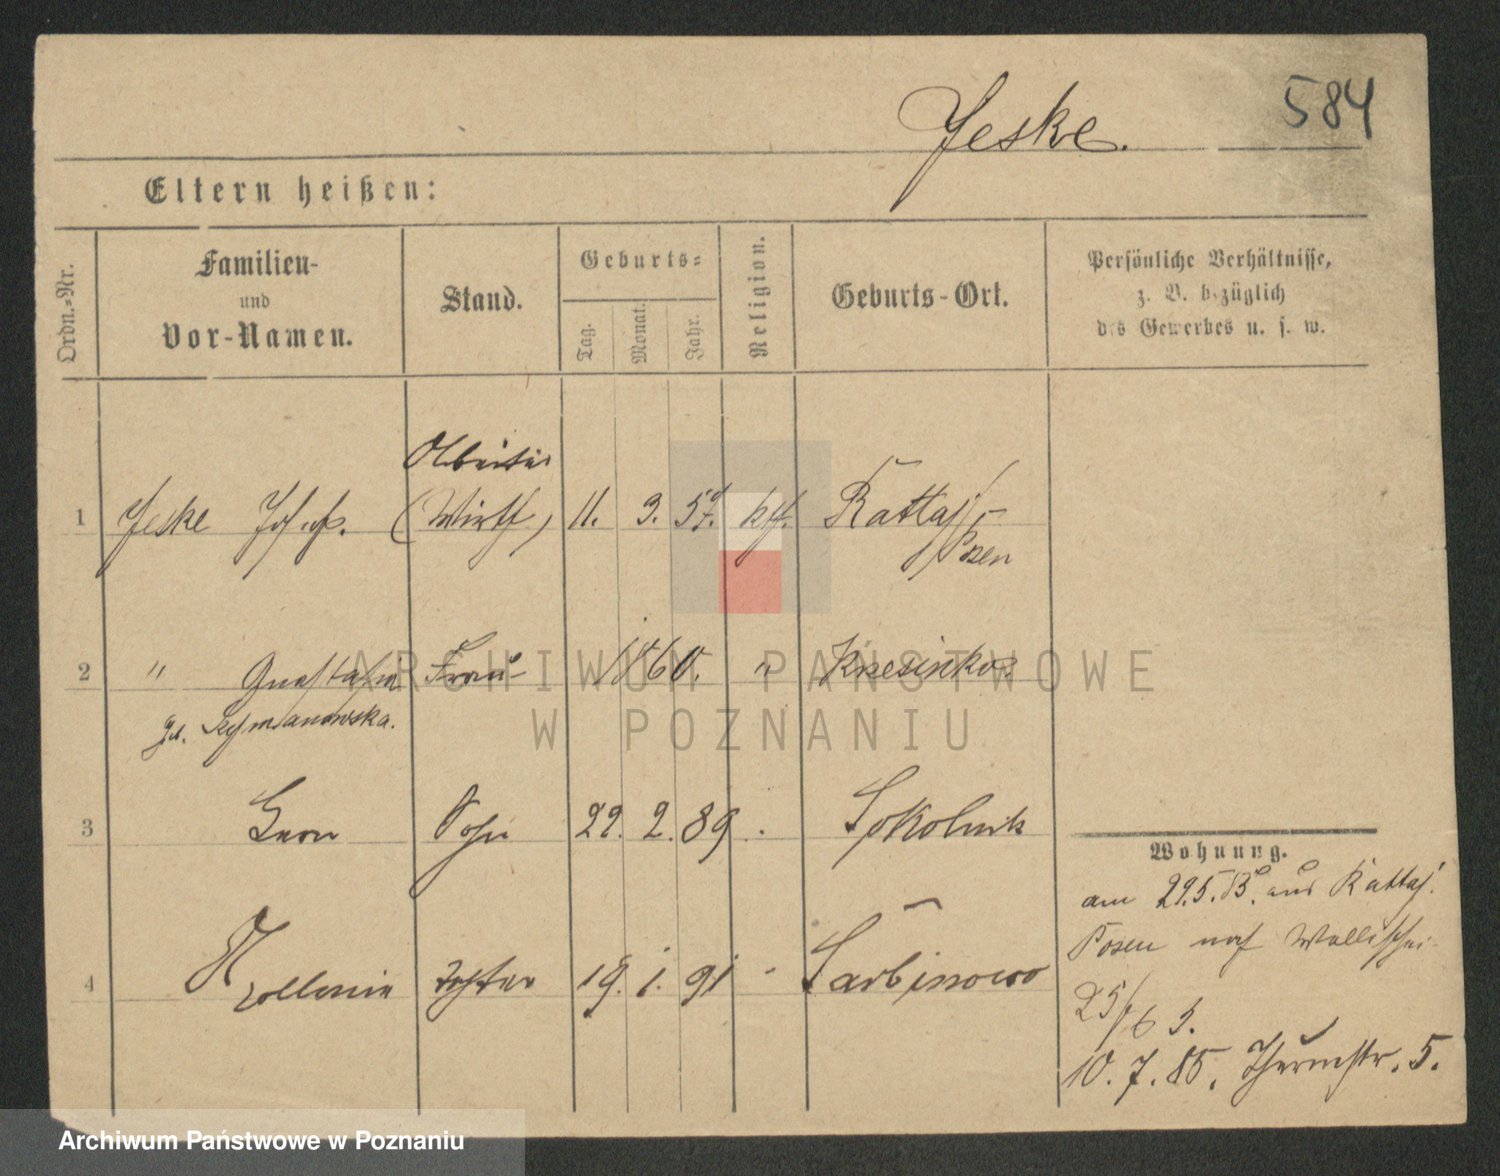 584
Jeske.
Eltern heißen:
Ordn.-Nr.
Familien-
und
Vor-Namen.
Stand.
Geburts-
Tag.
Monat.
Jahr.
Religion.
Geburts-Ort.
Persönliche Verhältnisse,
z. B. bezüglich
des Gewerbes u. s. w.
Arbeiter
1 Jeske Joseph. (Wirth) 11. 3. 57. kth. Rattaj
Posen
2 " Frau 1860. "
geb. Szymanowska.
3 Leon Sohn 22. 2. 89 Sokolnik
4 Tochter 19. 1. 91 Sarbinowo
Wohnung.
am 29.5. aus Rattaj.
Posen nach Wallischei
25/
10. 7. 85. Thurmstr. 5.
ARCHIWUM PAŃSTWOWE
W POZNANIU
Archiwum Państwowe w Poznaniu